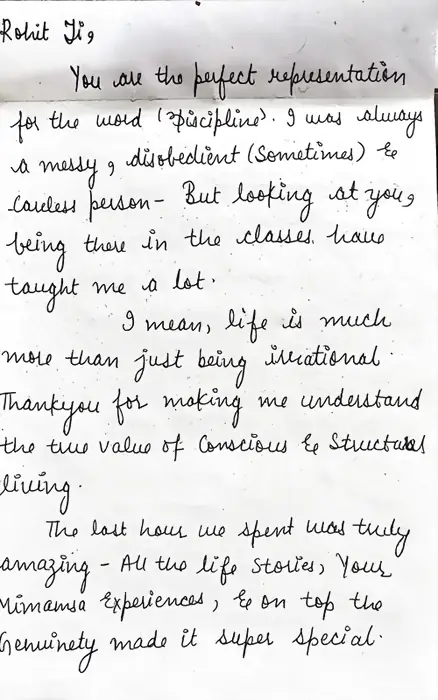 Rohit Ji,
You are the perfect representation
for the word 'Discipline'. I was always
a messy, disobedient (Sometimes) &
Careless person - But looking at you,
being there in the classes. have
taught me a lot.
I mean, life is much
more than just being irrational.
Thankyou for making me understand
the true value of Conscious & Structural
living.
The last hour we spent was truly
amazing - All the life Stories, Your
Mimamsa Experiences, & on top the
Genuinety made it super special.